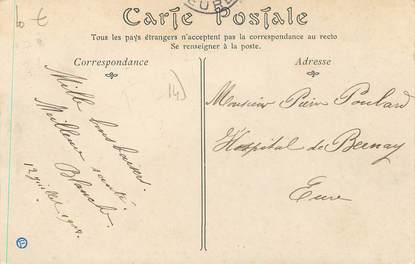 EURE
6 €
Carte Postale
Tous les pays étrangers n'acceptent pas la correspondance au recto
Se renseigner à la poste.
Correspondance
Adresse
14)
Mille bons baisers.
Meilleure santé.
Blanche
12 juillet 1908.
Monsieur Pierre Poulard
Hospital de Bernay
Eure